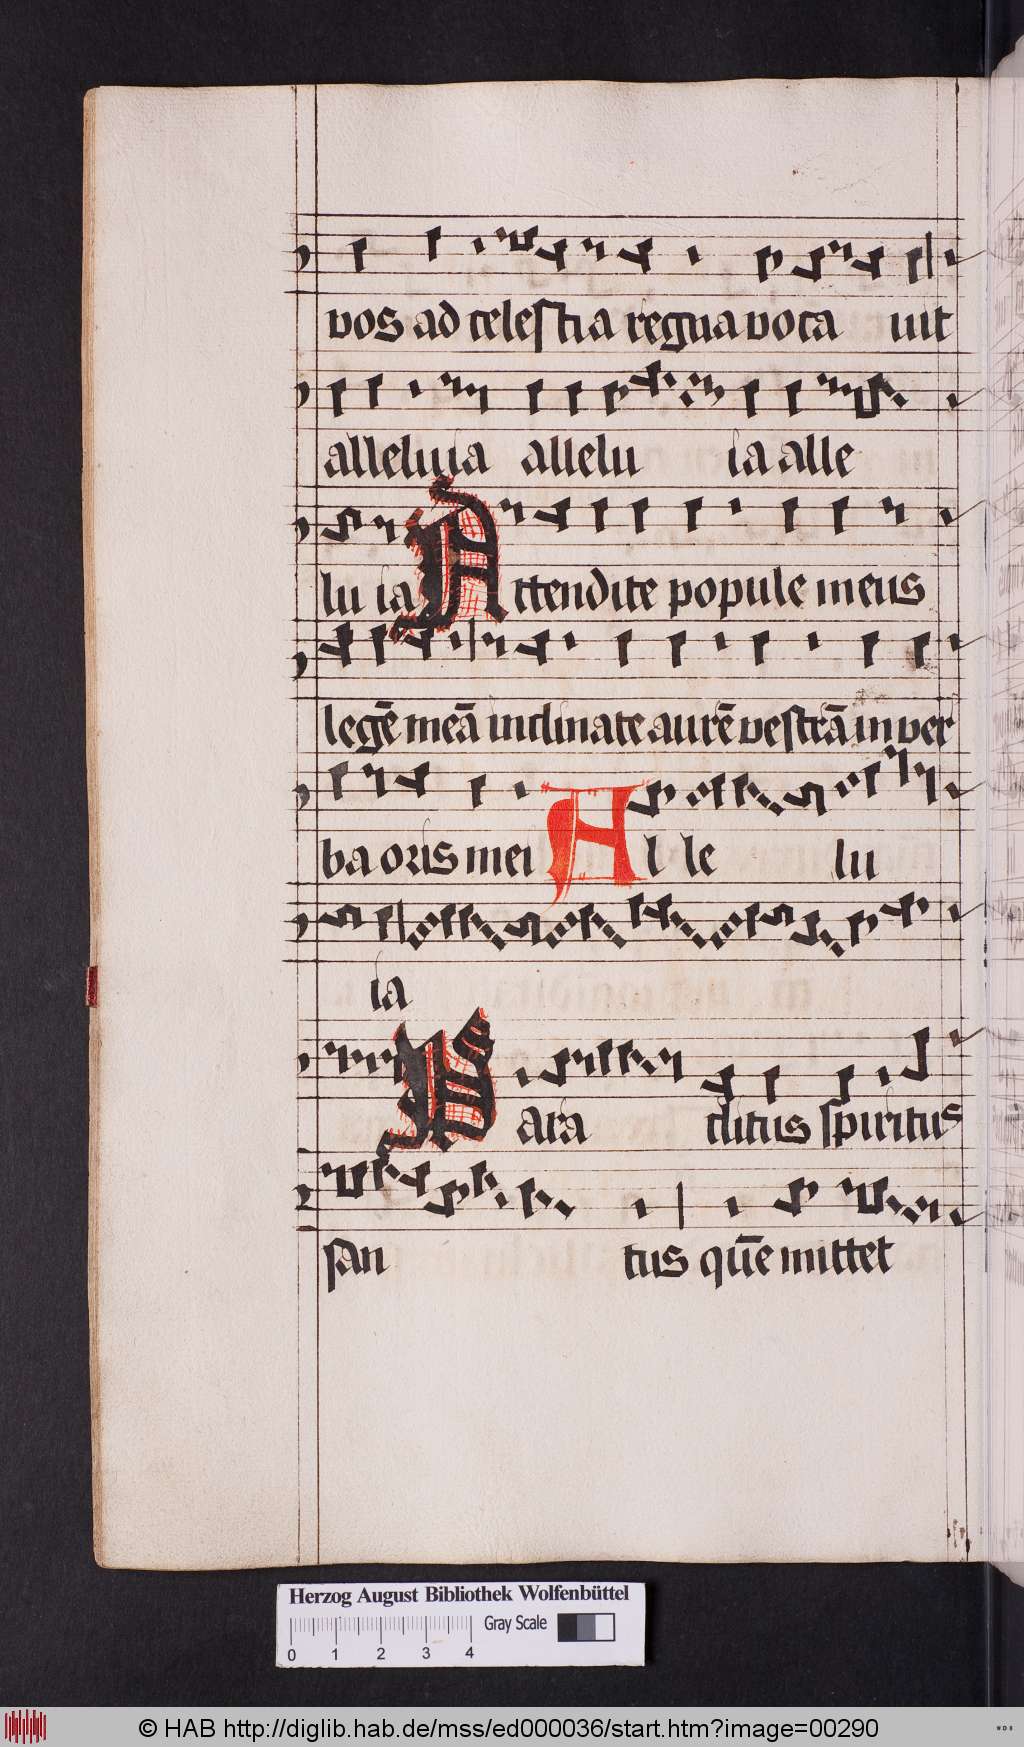 vos ad celestia regna voca uit
alleluia allelu ia alle
lu ia Attendite popule meus
legē meā inclinate aurē vestrā in ver
ba oris mei Al le lu
ia
Para clitus spiritus
san tus quē mittet
Herzog August Bibliothek Wolfenbüttel
Gray Scale
0 1 2 3 4
© HAB http://diglib.hab.de/mss/ed000036/start.htm?image=00290